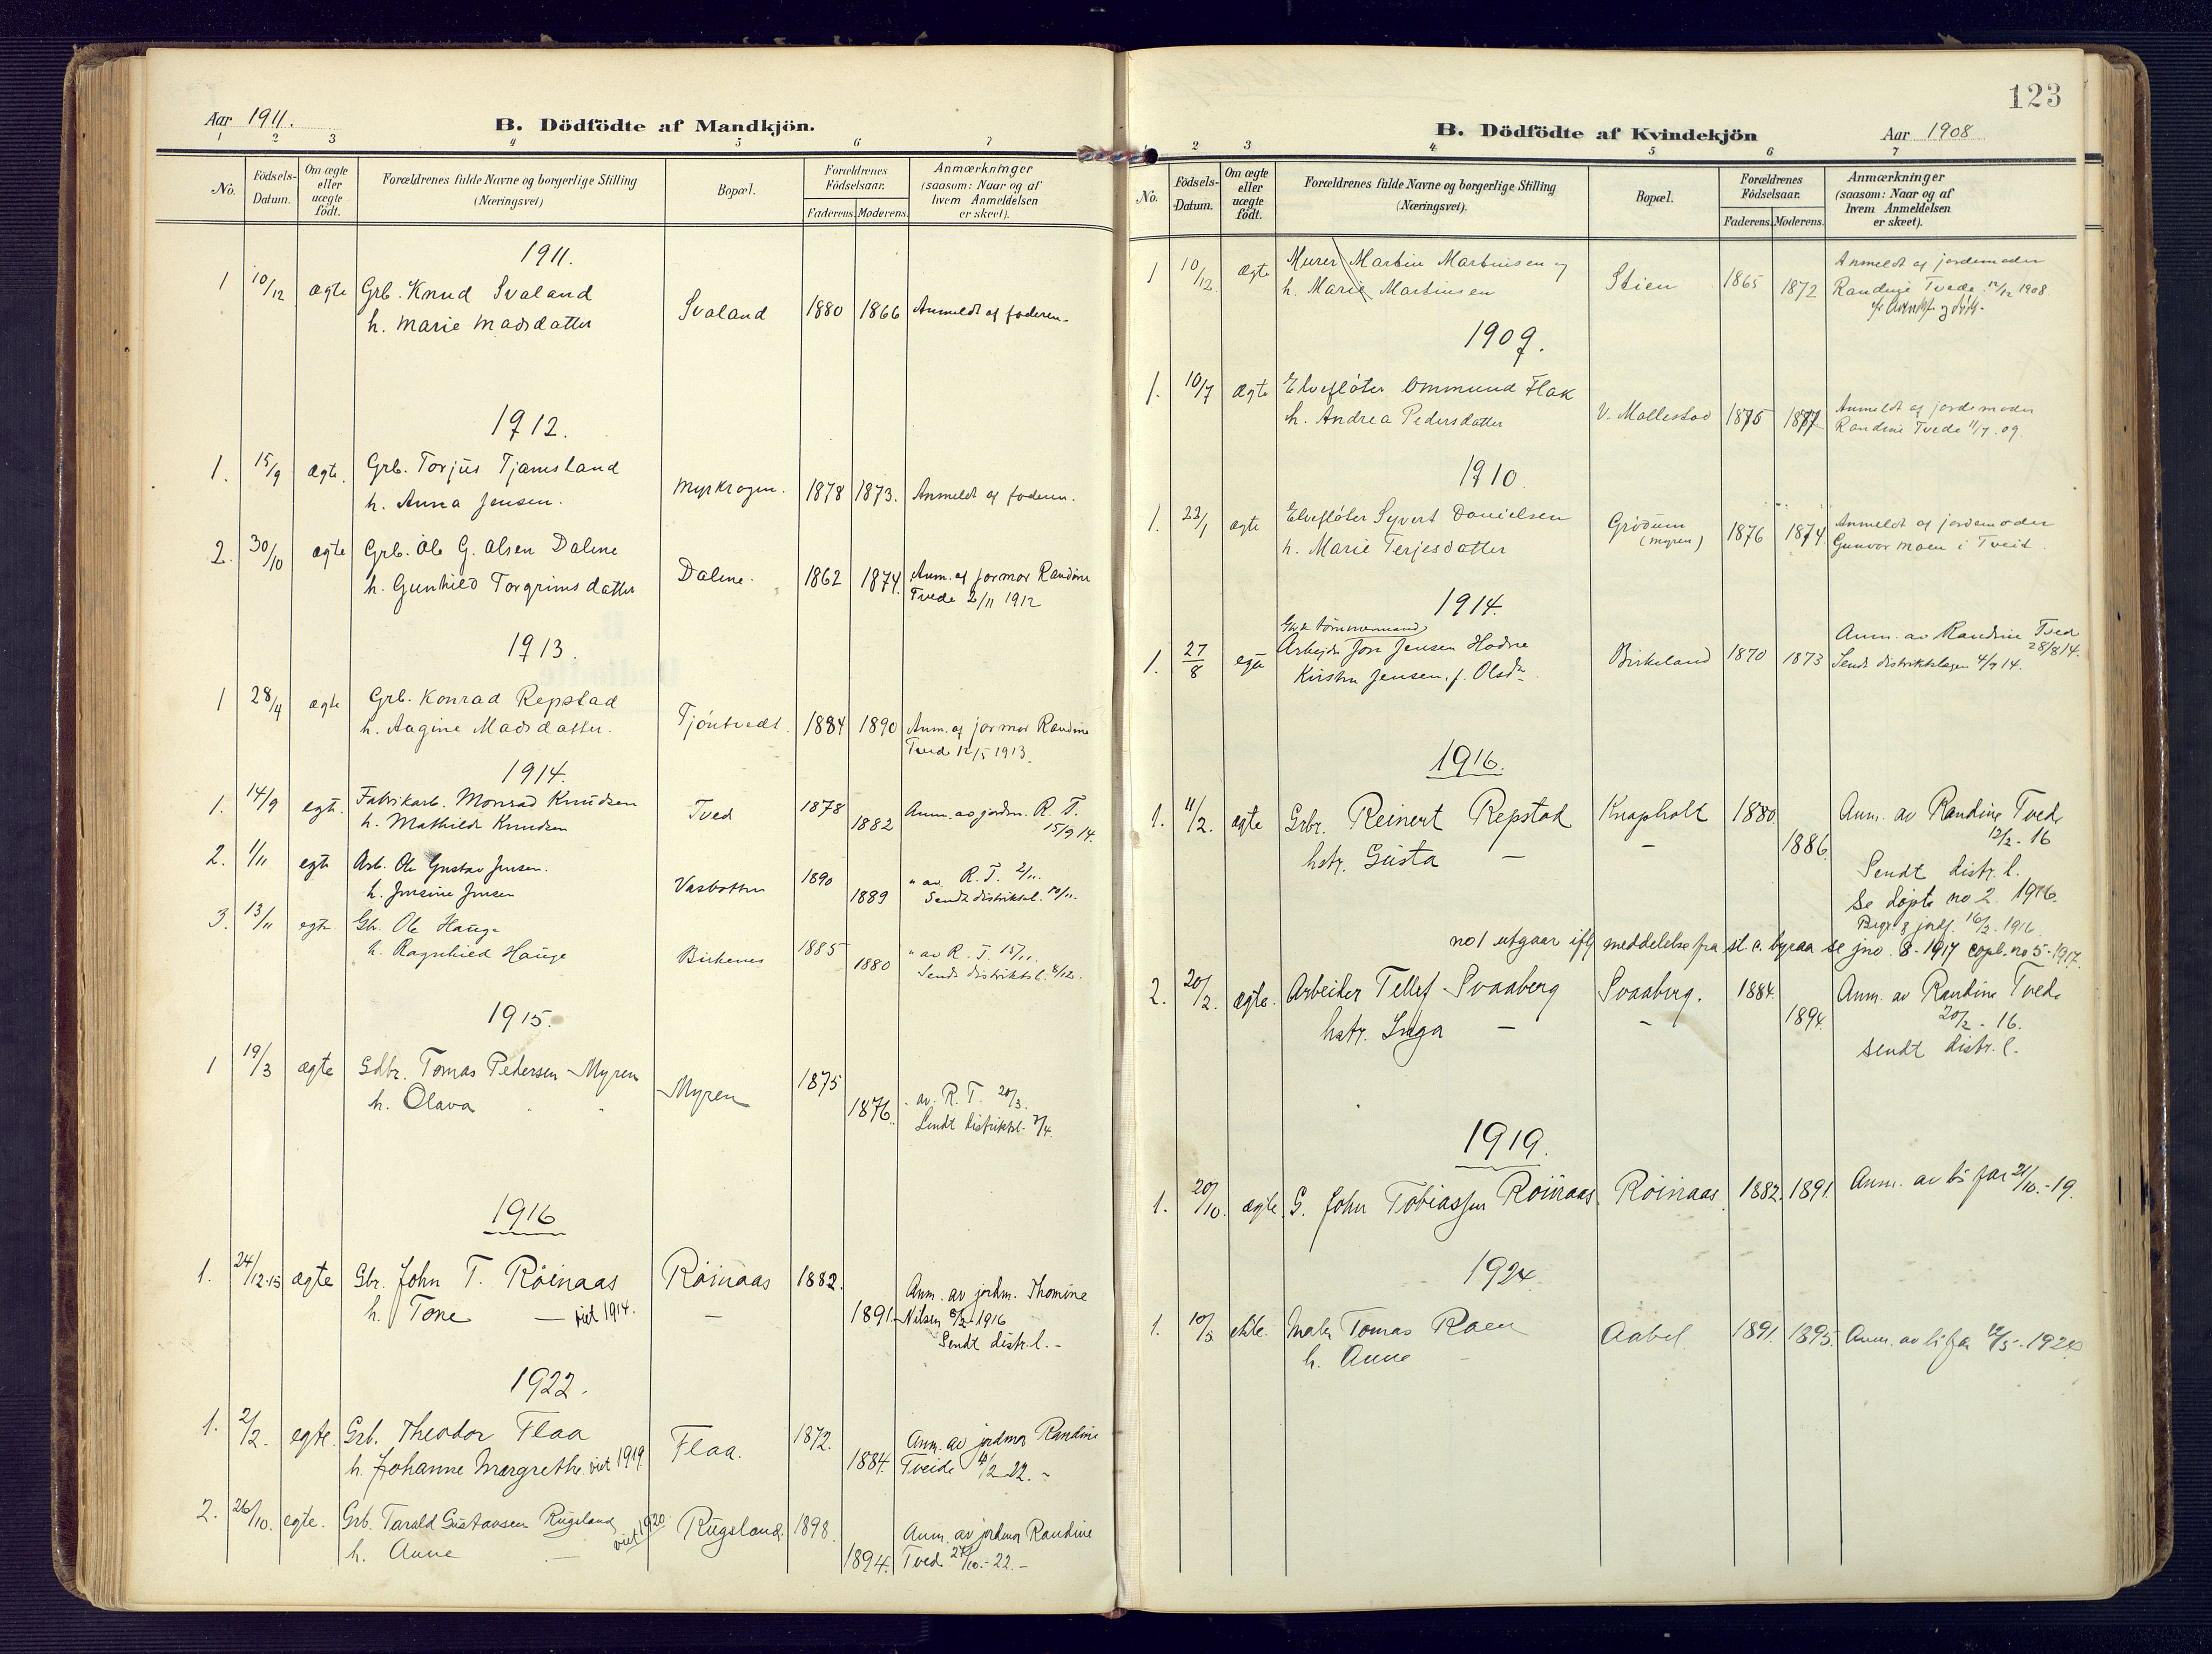 Aar 1911.
B. Dödfödte af Mandkjön.
1 2 3 4 5 6 7
No.
Födsels-
Datum.
Om ægte
eller
uægte
födt.
Forældrenes fulde Navne og borgerlige Stilling
(Næringsvei)
Bopæl.
Forældrenes
Födselsaar.
Faderens. Moderens.
Anmærkninger
(saasom: Naar og af
hvem Anmeldelsen
er skeet).
1911.
1 10/12 ægte Grb. Knud Svaland
h. Marie Madsdatter
Svaland 1880 1866 Anmeldt af faderen.
1912.
1. 15/9 ægte. Grb. Torjus Tjamsland
h. Anna Jensen.
Myrkrogen. 1878 1873. Anmeldt af faderen.
2. 30/10 ægte Grb. Ole G. Olsen Dalene
h. Gunhild Torgrimsdatter
Dalene. 1862 1874. Anm. af jormor Randine
Tvede 2/11 1912
1913.
1 28/4 ægte Grb. Konrad Repstad
h. Aagine Madsdatter.
Tjöntvedt. 1884 1890 Anm. af jormor Randine
Tvede 12/5 1913.
1914.
1. 14/9 egte. Fabrikarb. Monrad Knudsen
h. Mathilde Knudsen
Tved 1878 1882 Anm. av jordm. R. T.
15/9 14.
2. 1/11 egte Arb. Ole Gustav Jensen.
h. Jensine Jensen
Vasbotten 1890 1889 " av R. T. 2/11.
Sendt distriktsl. 10/11.
3. 13/11 egte Gbr. Ole Hauge
h. Ragnhild Hauge
Birkenes 1885 1880 " av R. T. 15/11.
Sendt distriktsl. 4/12.
1915.
1 19/3 ægte Gdbr. Tomas Pedersen Myren
h. Olava " "
Myren 1875 1876. " av. R. T. 20/3.
Sendt distriktsl. 7/4.
1916
1. 24/12-15 ægte Gbr. John T. Röinaas
h. Tone — viet 1914.
Röinaas 1882. 1891. Anm. av jordm. Thomine
Nilsen 8/2-1916
Sendt distr. l. -
1922.
1. 2/2. egte. Grb. Theodor Flaa
h. Johanne Margrethe viet 1919.
Flaa. 1872. 1884. Anm. av jordmor Randine
Tveide 4/2-22. -
2. 26/10. egte. Grb. Tarald Gustavsen Rugsland
h. Anne — viet 1920.
Rugsland. 1898. 1894. Anm. av jordmor Randine
Tved 27/10.-22. -
123
B. Dödfödte af Kvindekjön
Aar 1908
2 3 4 5 6 7
No.
Födsels-
Datum.
Om ægte
eller
uægte
födt.
Forældrenes fulde Navne og borgerlige Stilling
(Næringsvei).
Bopæl.
Forældrenes
Födselsaar.
Faderens. Moderens.
Anmærkninger
(saasom: Naar og af
hvem Anmeldelsen
er skeet).
1 10/12. ægte Murer Martin Martinsen og
h. Marie Martinsen
Stien 1865 1872 Anmeldt af jordemoder
Randine Tvede. 12/12 1908
1909.
1. 10/7 ægte Elvefløter Ommund Flak
h. Andrea Pedersdatter
V. Mollestad 1875 1877 Anmeldt af jordemoder
Randine Tvede 11/7. 09.
1910
1. 22/1 ægte Elvefløter Syvert Danielsen
h. Marie Terjesdatter
Grödum
(Myren)
1876 1874. Anmeldt af jordemoder
Gunvor Moen i Tveit.
1914.
Gbr & tømmermand
1. 27/8 egte Arbejder Jon Jensen Hodne
Kirsten Jensen, f. Olsdr.
Birkeland 1870 1873 Anm. av Randine Tved
28/8 14.
Sendt distriktslægen 4/9 14.
1916.
1. 11/2. ægte Grbr. Reinert Repstad
hstr. Gusta —
Knapholt
—
1880. 1886. Anm. av Randine Tvede
12/2-16
Sendt distr. l.
Se döpte no 2. 1916.
Begr. & jordf. 16/3-1916.
no 1 utgaar iflg meddelelse fra st. c. byraa se jno. 8-1917 copb. no 5-1917.
2. 20/2. ægte. Arbeider Tellef Svaaberg
hstr. Inga —
Svaaberg.
—
1884. 1894. Anm. av Randine Tvede
20/2-16.
Sendt distr. l.
1919.
1. 20/10. ægte. G. John Tobiassen Röinaas Röinaas. 1882. 1891. Anm. av b.far 21/10.-19.
1924.
1. 10/5 ekte. Maler Tomas Roen
h. Anne —
Aabel. 1891. 1895. Anm. av b.far 12/5-1924